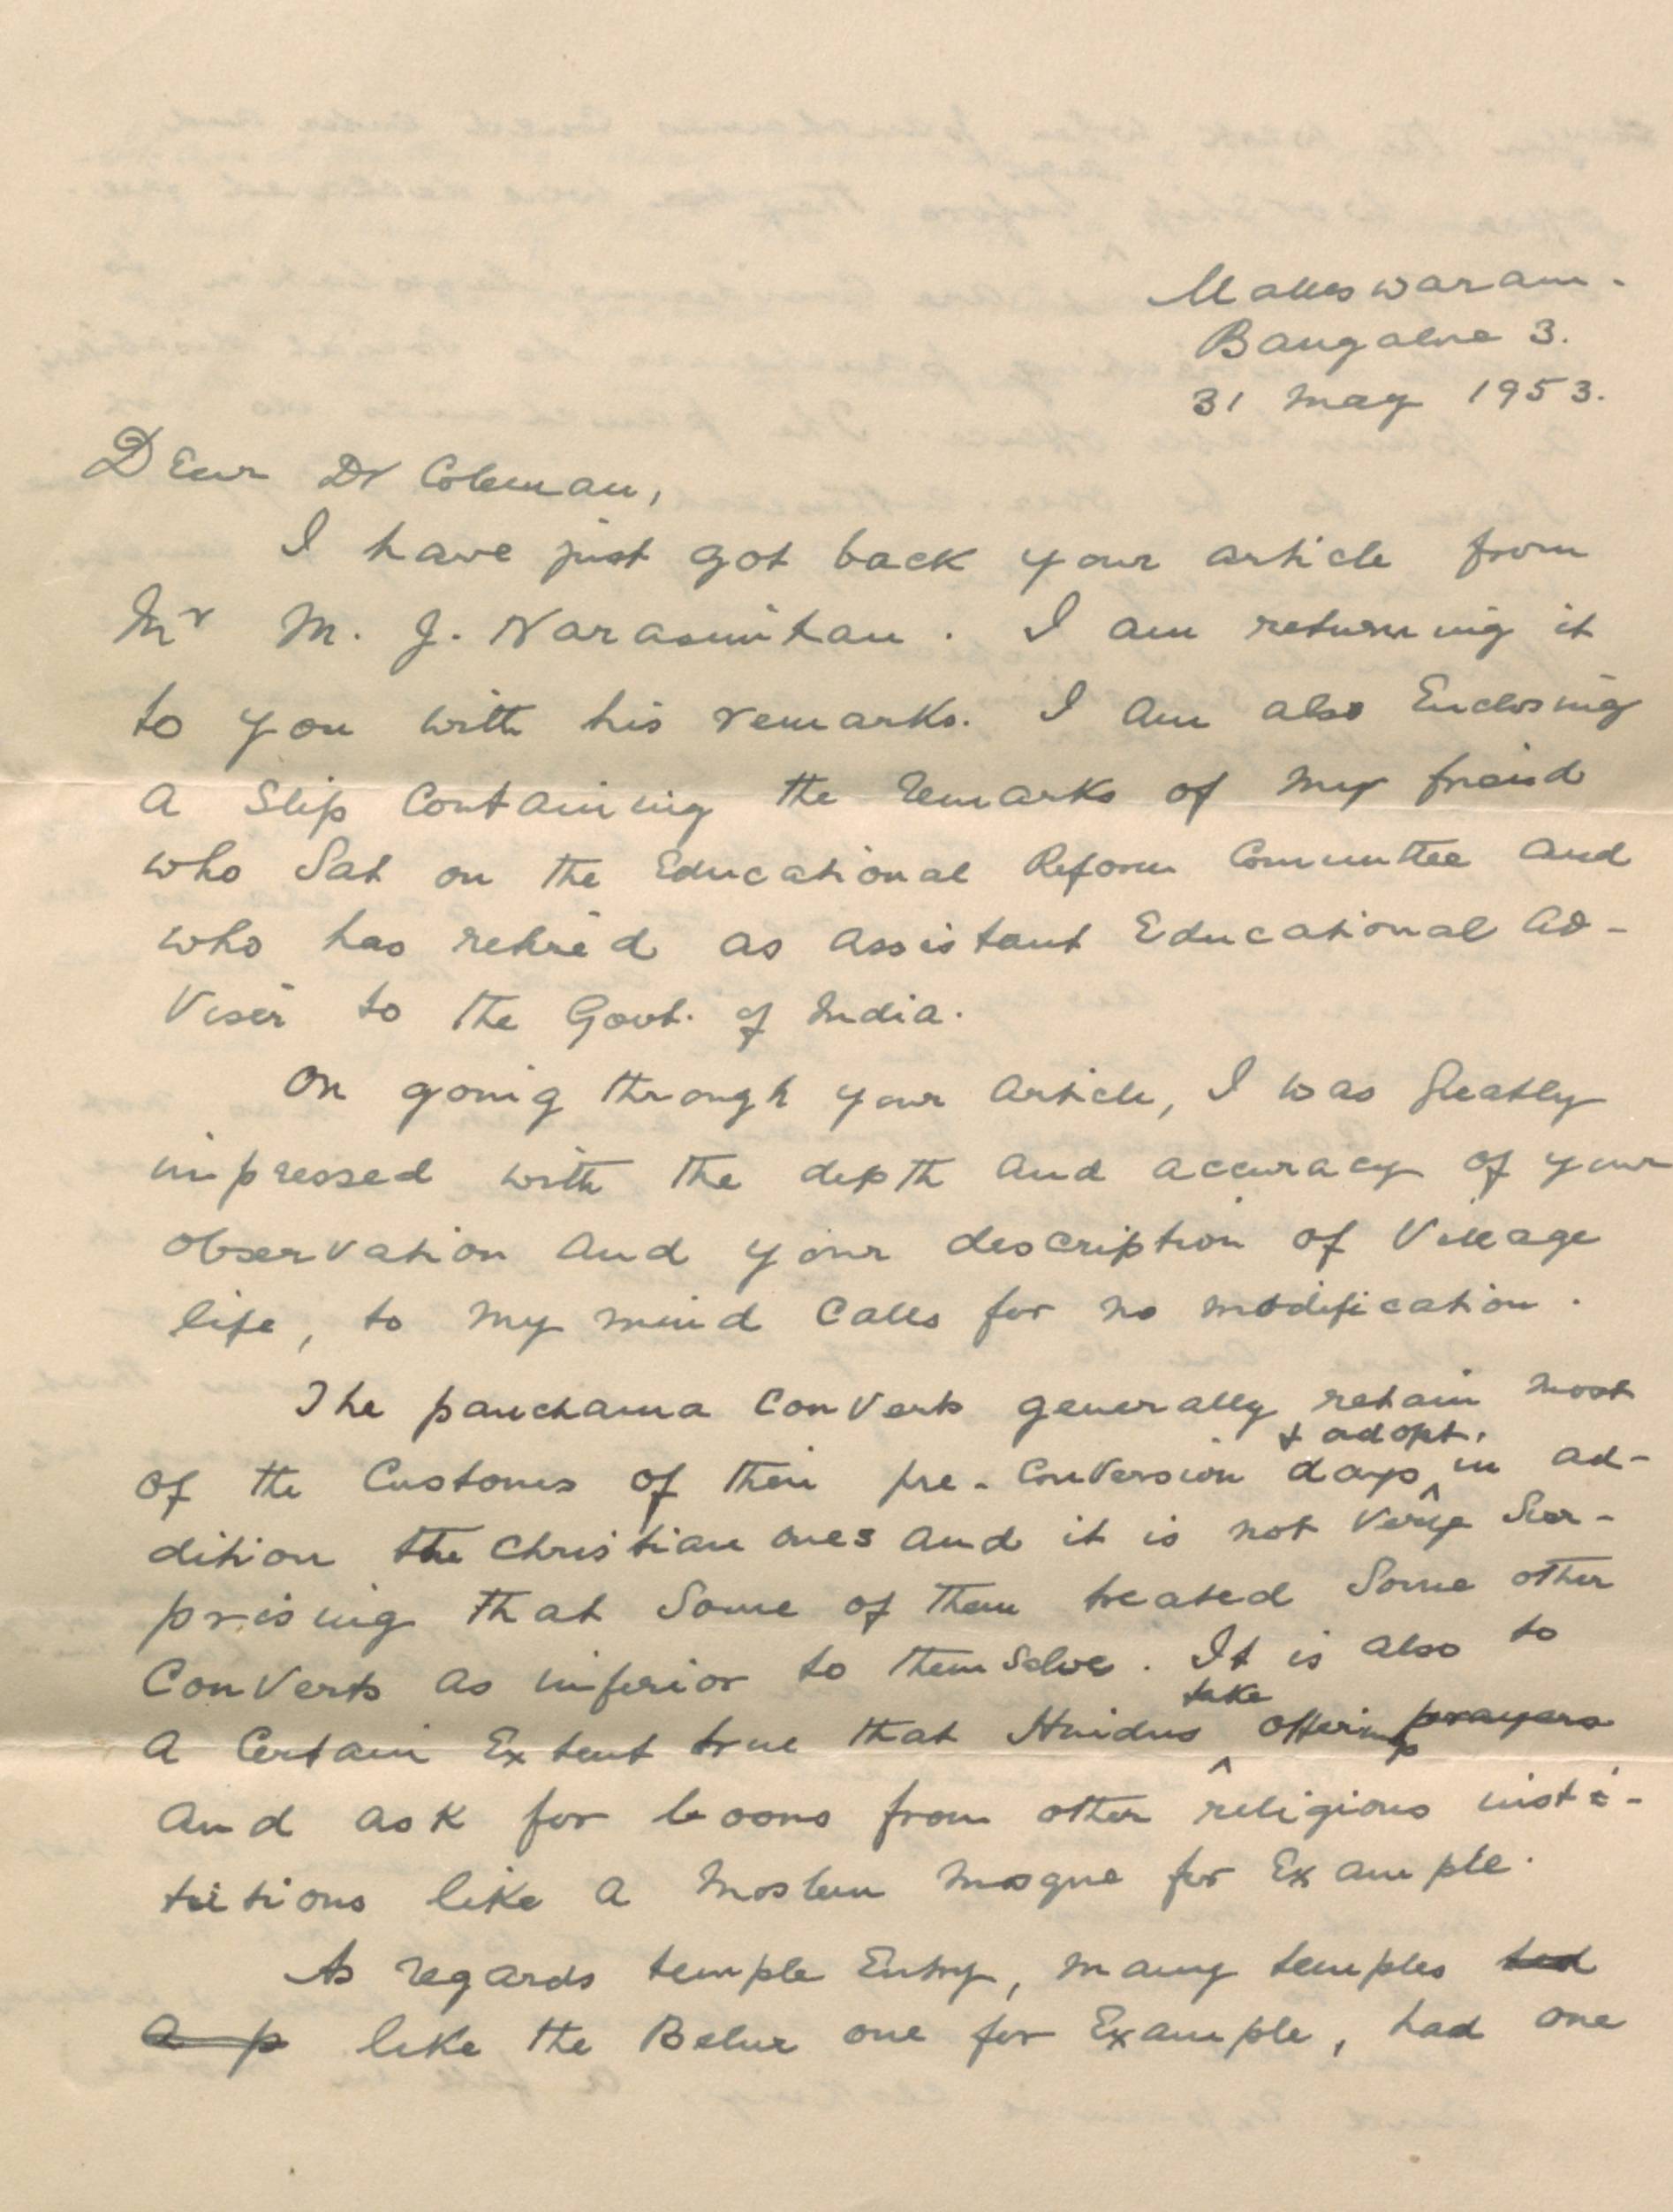 Malleswaram.
Bangalore 3.
31 May 1953.
Dear Dr Coleman,
I have just got back your article from
Mr M. J. Narasimhan. I am returning it
to you with his remarks. I am also Enclosing
a Slip Containing the remarks of my friend
who Sat on the Educational Reform Committee and
who has retired as assistant Educational Ad-
Viser to the Govt. of India.
On going through your article, I was greatly
impressed with the depth and accuracy of your
observation and your description of Village
life, to my mind Calls for no modification.
The panchama Converts generally retain most
& adopt.
of the Customs of their pre-Conversion days ^ in ad-
dition the Christian ones and it is not very Sur-
prising that Some of them treated Some other
Converts as inferior to themselve. It is also to
take
a Certain Extent true that Hindus ^ offerings prayers
and ask for boons from other religious insti-
tutions like a Moslem Mosque for Example.
As regards temple Entry, many temples had
a p like the Belur one for Example, had one